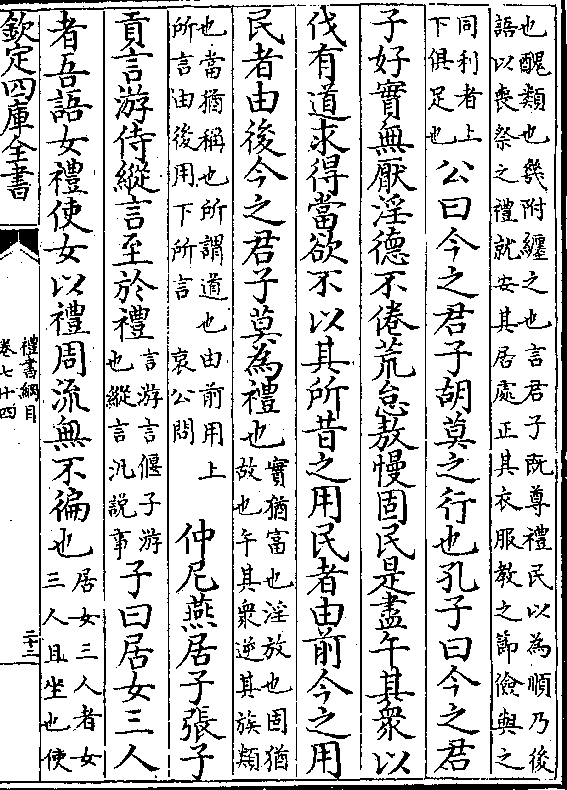 也醜類也幾附纏之也言君子既尊禮民以為順乃後
語以喪祭之禮就安其居處正其衣服教之節儉與之
同利者上
下俱足也
公曰今之君子胡莫之行也孔子曰今之君
子好實無厭淫德不倦荒怠敖慢固民是盡午其衆以
伐有道求得當欲不以其所昔之用民者由前今之用
民者由後今之君子莫為禮也
實猶富也淫放也固猶
故也午其衆逆其族類
也當猶稱也所謂道也由前用上
所言由後用下所言 哀公問
仲尼燕居子張子
貢言游侍縱言至於禮
言游言偃子游
也縱言汎説事
子曰居女三人
者吾語女禮使女以禮周流無不徧也
居女三人者女
三人且坐也使
欽定四庫全書
禮書綱目
卷七十四
二十三